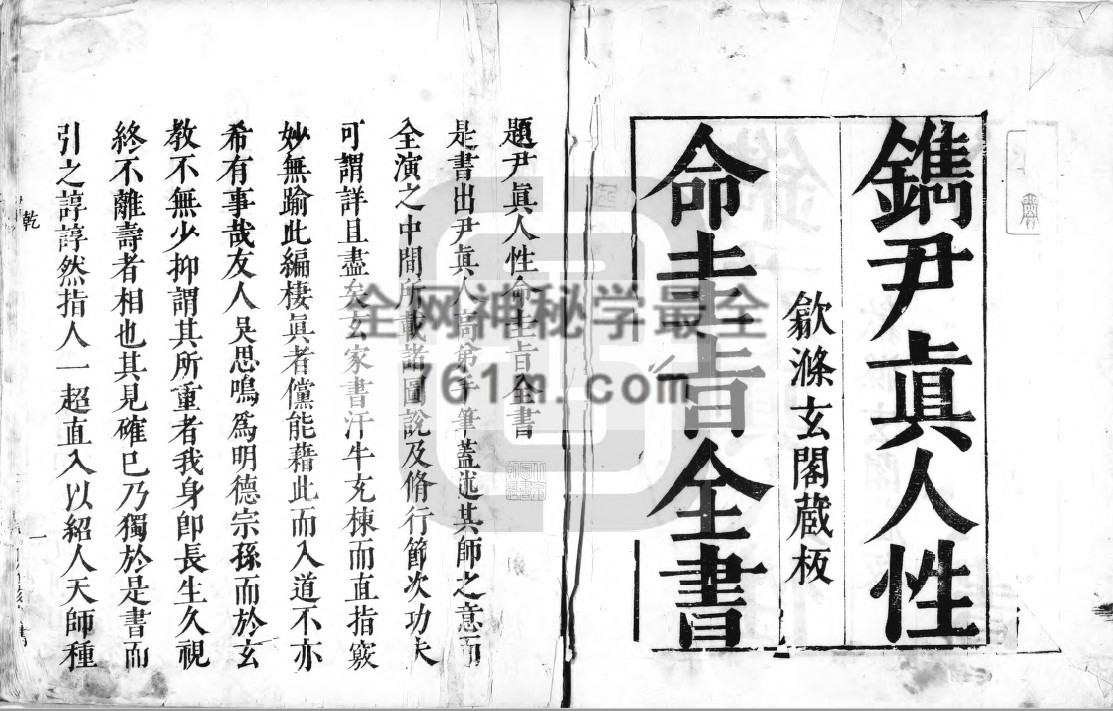 鐫尹眞人性
歙滌玄閣蔵板
命圭旨全書
題尹眞人性命圭旨全書
是書出尹眞人高弟手筆蓋述其師之意而
全演之中間所載諸圖說及脩行節次功夫
可謂詳且盡矣玄家書汗牛充棟而直指竅
妙無踰此編棲眞者儻能藉此而入道不亦
希有事哉友人吳思鳴爲明德宗孫而於玄
教不無少抑謂其所重者我身卽長生久視
終不離壽者相也其見確已乃獨於是書而
引之諄諄然指人一超直入以紹人天師種
乾
一
全网神秘学最全
761m.com